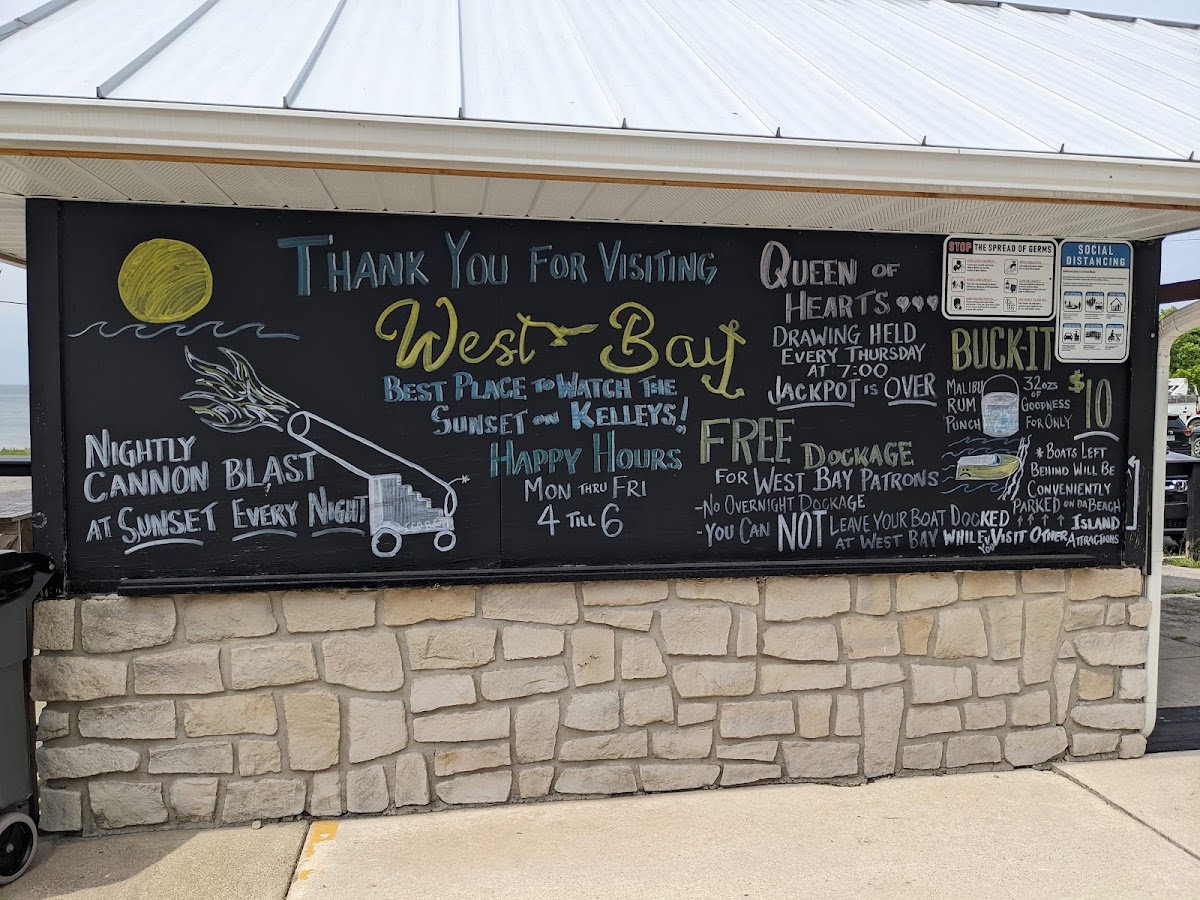 THANK YOU FOR VISITING
West Bay
BEST PLACE TO WATCH THE
SUNSET ON KELLEYS!
HAPPY HOURS
MON THRU FRI
4 TILL 6
NIGHTLY
CANNON BLAST
AT SUNSET EVERY NIGHT
QUEEN OF
HEARTS
DRAWING HELD
EVERY THURSDAY
AT 7:00
JACKPOT IS OVER
FREE DOCKAGE
FOR WEST BAY PATRONS
-NO OVERNIGHT DOCKAGE
-YOU CAN NOT LEAVE YOUR BOAT DOCKED
AT WEST BAY WHILE YOU VISIT OTHER ISLAND
ATTRACTIONS
STOP THE SPREAD OF GERMS
SOCIAL
DISTANCING
BUCK-IT
MALIBU
RUM
PUNCH
32OZS
OF
GOODNESS
FOR ONLY
$10
*BOATS LEFT
BEHIND WILL BE
CONVENIENTLY
PARKED ON DA BEACH